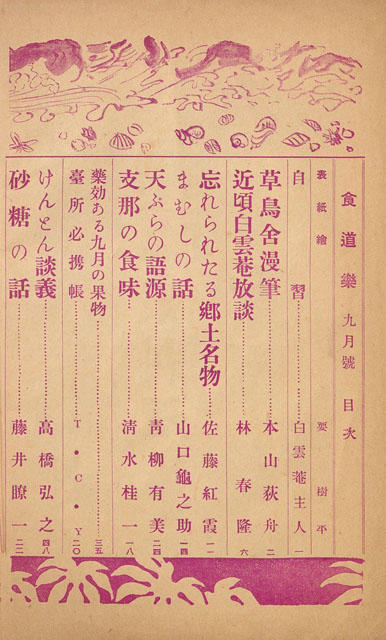 食道樂 九月號 目次
表紙繪 要樹平
自習 白雲菴主人 一
草鳥舍漫筆 本山荻舟 二
近頃白雲菴放談 林春隆 六
忘れられたる鄉土名物 佐藤紅霞 一一
まむしの話 山口龜之助 一四
天ぷらの語源 靑柳有美 二四
支那の食味 淸水桂一 一八
藥効ある九月の果物 三五
臺所必携帳 T・C・Y 二〇
けんとん談義 高橋弘之 四八
砂糖の話 藤井暸一 二二